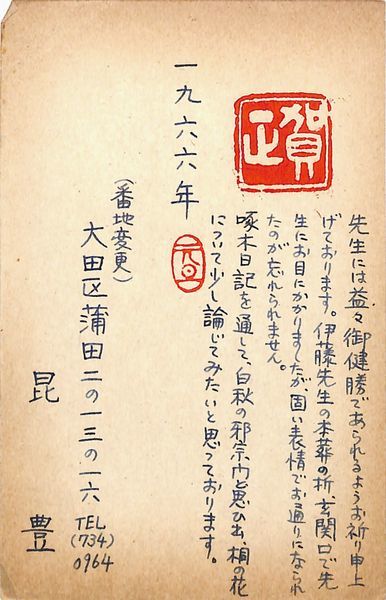 賀正
先生には益々御健勝であられるようお祈り申上
げております。伊藤先生の本葬の折、玄関口で先
生にお目にかかりましたが、固い表情でお通りになられ
たのが忘れられません。
啄木日記を通して、白秋の邪宗门と思ひ出、桐の花
について少し論じてみたいと思っております。
一九六六年 元旦
(番地変更)
大田区蒲田二の一三の一六
TEL
(734)
0964
昆 豊